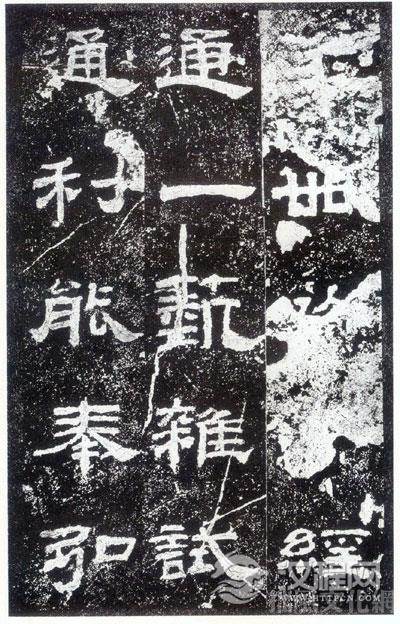 卌經
通一蓺雜試
通利能奉弘
汉程网
WWW.HTTPCN.COM